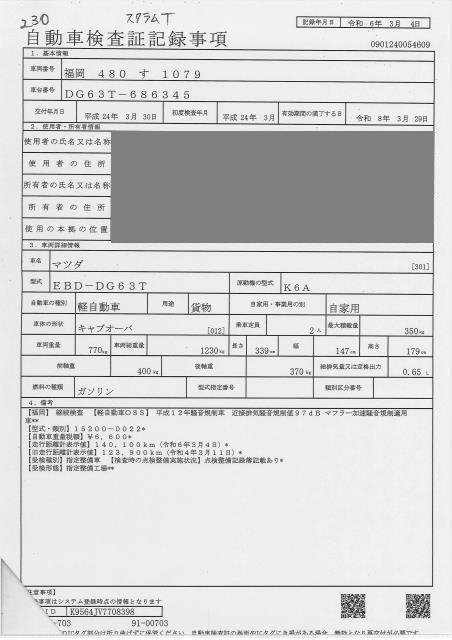 230 スクラムT
記録年月日 令和 6年 3月 4日
自動車検査証記録事項 0901240054609
1．基本情報
車両番号 福岡 480 す 1079
車台番号 DG63T－686345
交付年月日 平成 24年 3月 30日 初度検査年月 平成 24年 3月 有効期間の満了する日 令和 8年 3月 29日
2．使用者・所有者情報
使用者の氏名又は名称
使用者の住所
所有者の氏名又は名称
所有者の住所
使用の本拠の位置
3．車両詳細情報
車名 マツダ [301]
型式 EBD－DG63T 原動機の型式 K6A
自動車の種別 軽自動車 用途 貨物 自家用・事業用の別 自家用
車体の形状 キャブオーバ [012] 乗車定員 2人 最大積載量 350kg
車両重量 770kg 車両総重量 1230kg 長さ 339cm 幅 147cm 高さ 179cm
前軸重 400kg 後軸重 370kg 総排気量又は定格出力 0.65 L
燃料の種類 ガソリン 型式指定番号 類別区分番号
4．備考
【福岡】 継続検査 【軽自動車OSS】 平成12年騒音規制車 近接排気騒音規制値97dB マフラー加速騒音規制適用
車**
【型式・類別】15200－0022*
【自動車重量税額】￥6，600*
【走行距離計表示値】140，100km（令和6年3月4日）*
【旧走行距離計表示値】123，900km（令和4年3月11日）*
【受検種別】指定整備車 【検査時の点検整備実施状況】点検整備記録簿記載あり*
【受検形態】指定整備工場**
注意事項】
事項はシステム登録時点の情報となります
ID K9564JV7708398
-00703 91-00703